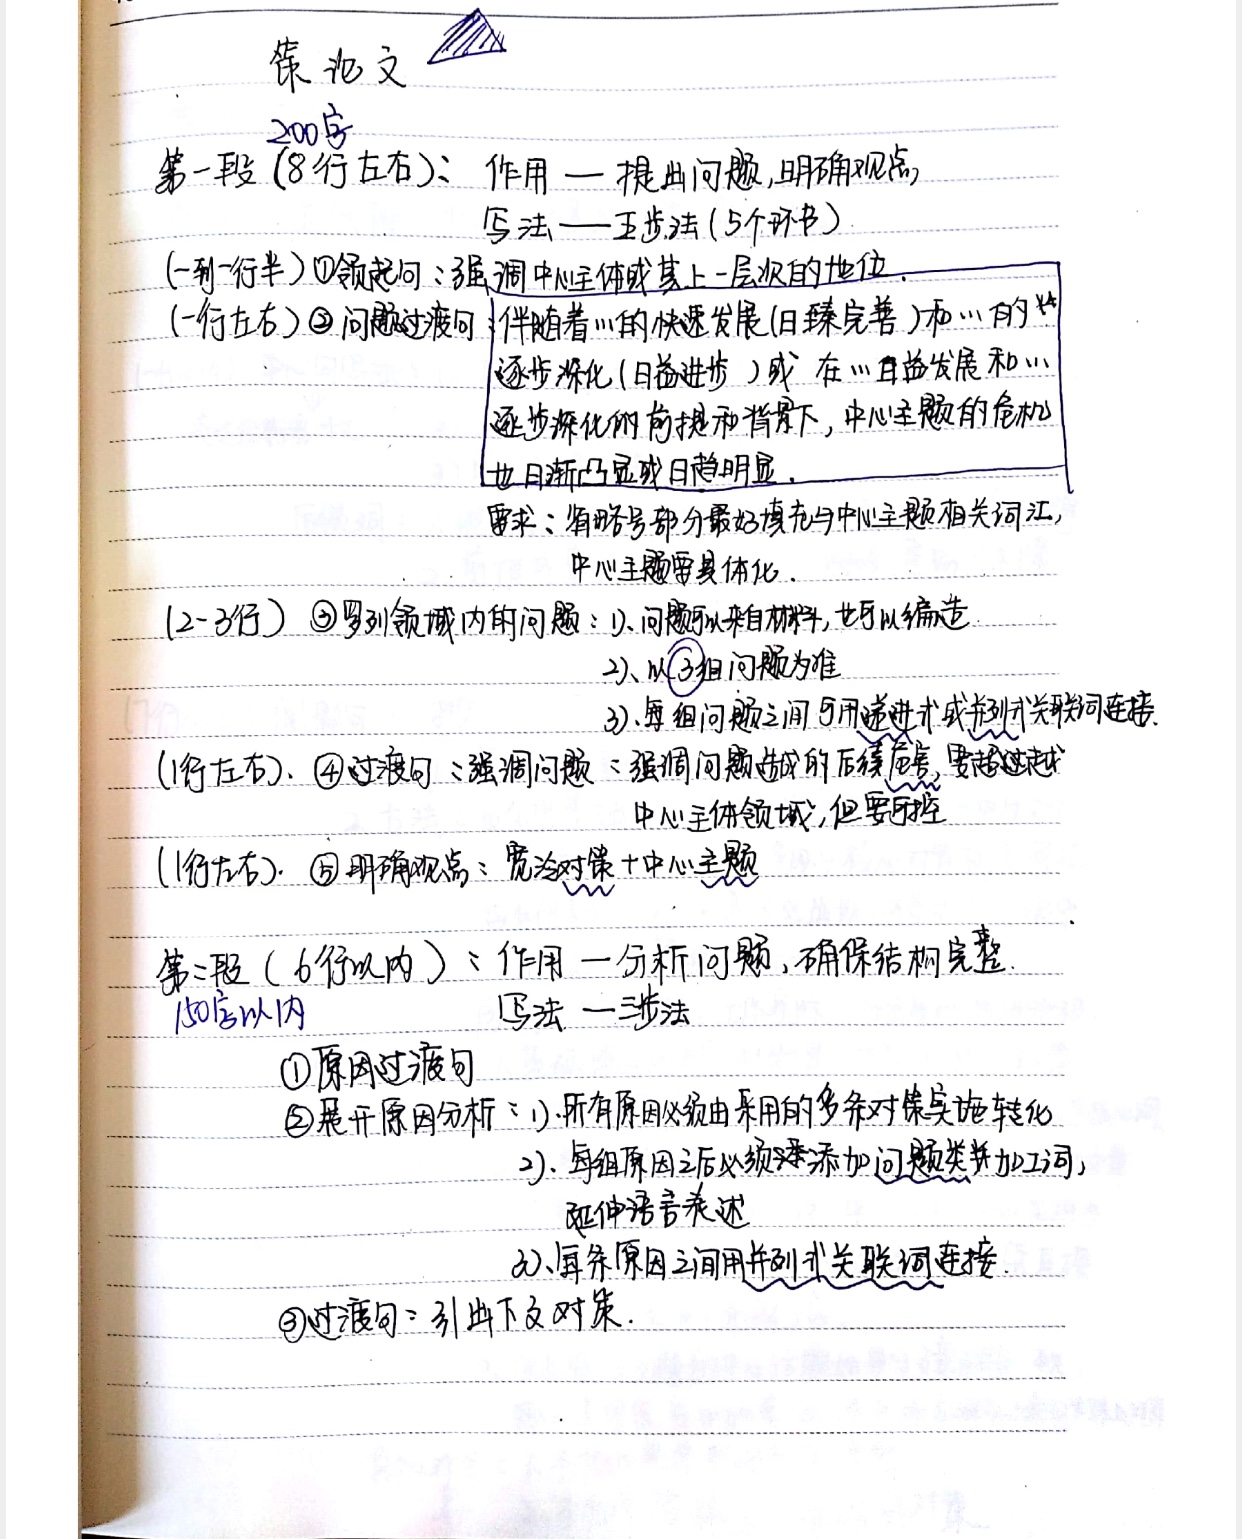 策论文
200字
第一段(8行左右): 作用 — 提出问题,明确观点,
写法——五步法(5个环节)
(一到一行半)①领起句:强调中心主体或其上一层次的地位.
(一行左右)②问题过渡句:伴随着…的快速发展(日臻完善)和…的
逐步深化(日益进步)或 在…日益发展和…
逐步深化的前提和背景下,中心主题的危机
也日渐凸显或日趋明显.
要求:省略号部分最好填充与中心主题相关词汇,
中心主题要具体化.
(2-3行) ③罗列领域内的问题:1)、问题可以来自材料,也可以编造
2)、以③组问题为准
3)、每组问题之间可用递进式或并列式关联词连接.
(1行左右). ④过渡句:强调问题:强调问题造成的后续危害,要超过越
中心主体领域,但要可控
(1行左右). ⑤明确观点:宽泛对策+中心主题
第二段(6行以内): 作用 — 分析问题,确保结构完整.
150字以内
写法 — 三步法
①原因过渡句
②展开原因分析:1)、所有原因必须由采用的多条对策实施转化
2)、每组原因之后必须添加问题类并加工词,
延伸语言表述
3)、每条原因之间用并列式关联词连接.
③过渡句:引出下文对策.